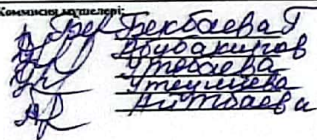 Комиссия мүшелері:
Бекбаева Г
Абубакиров
Утебаева
Утеулиева
Айтбаева